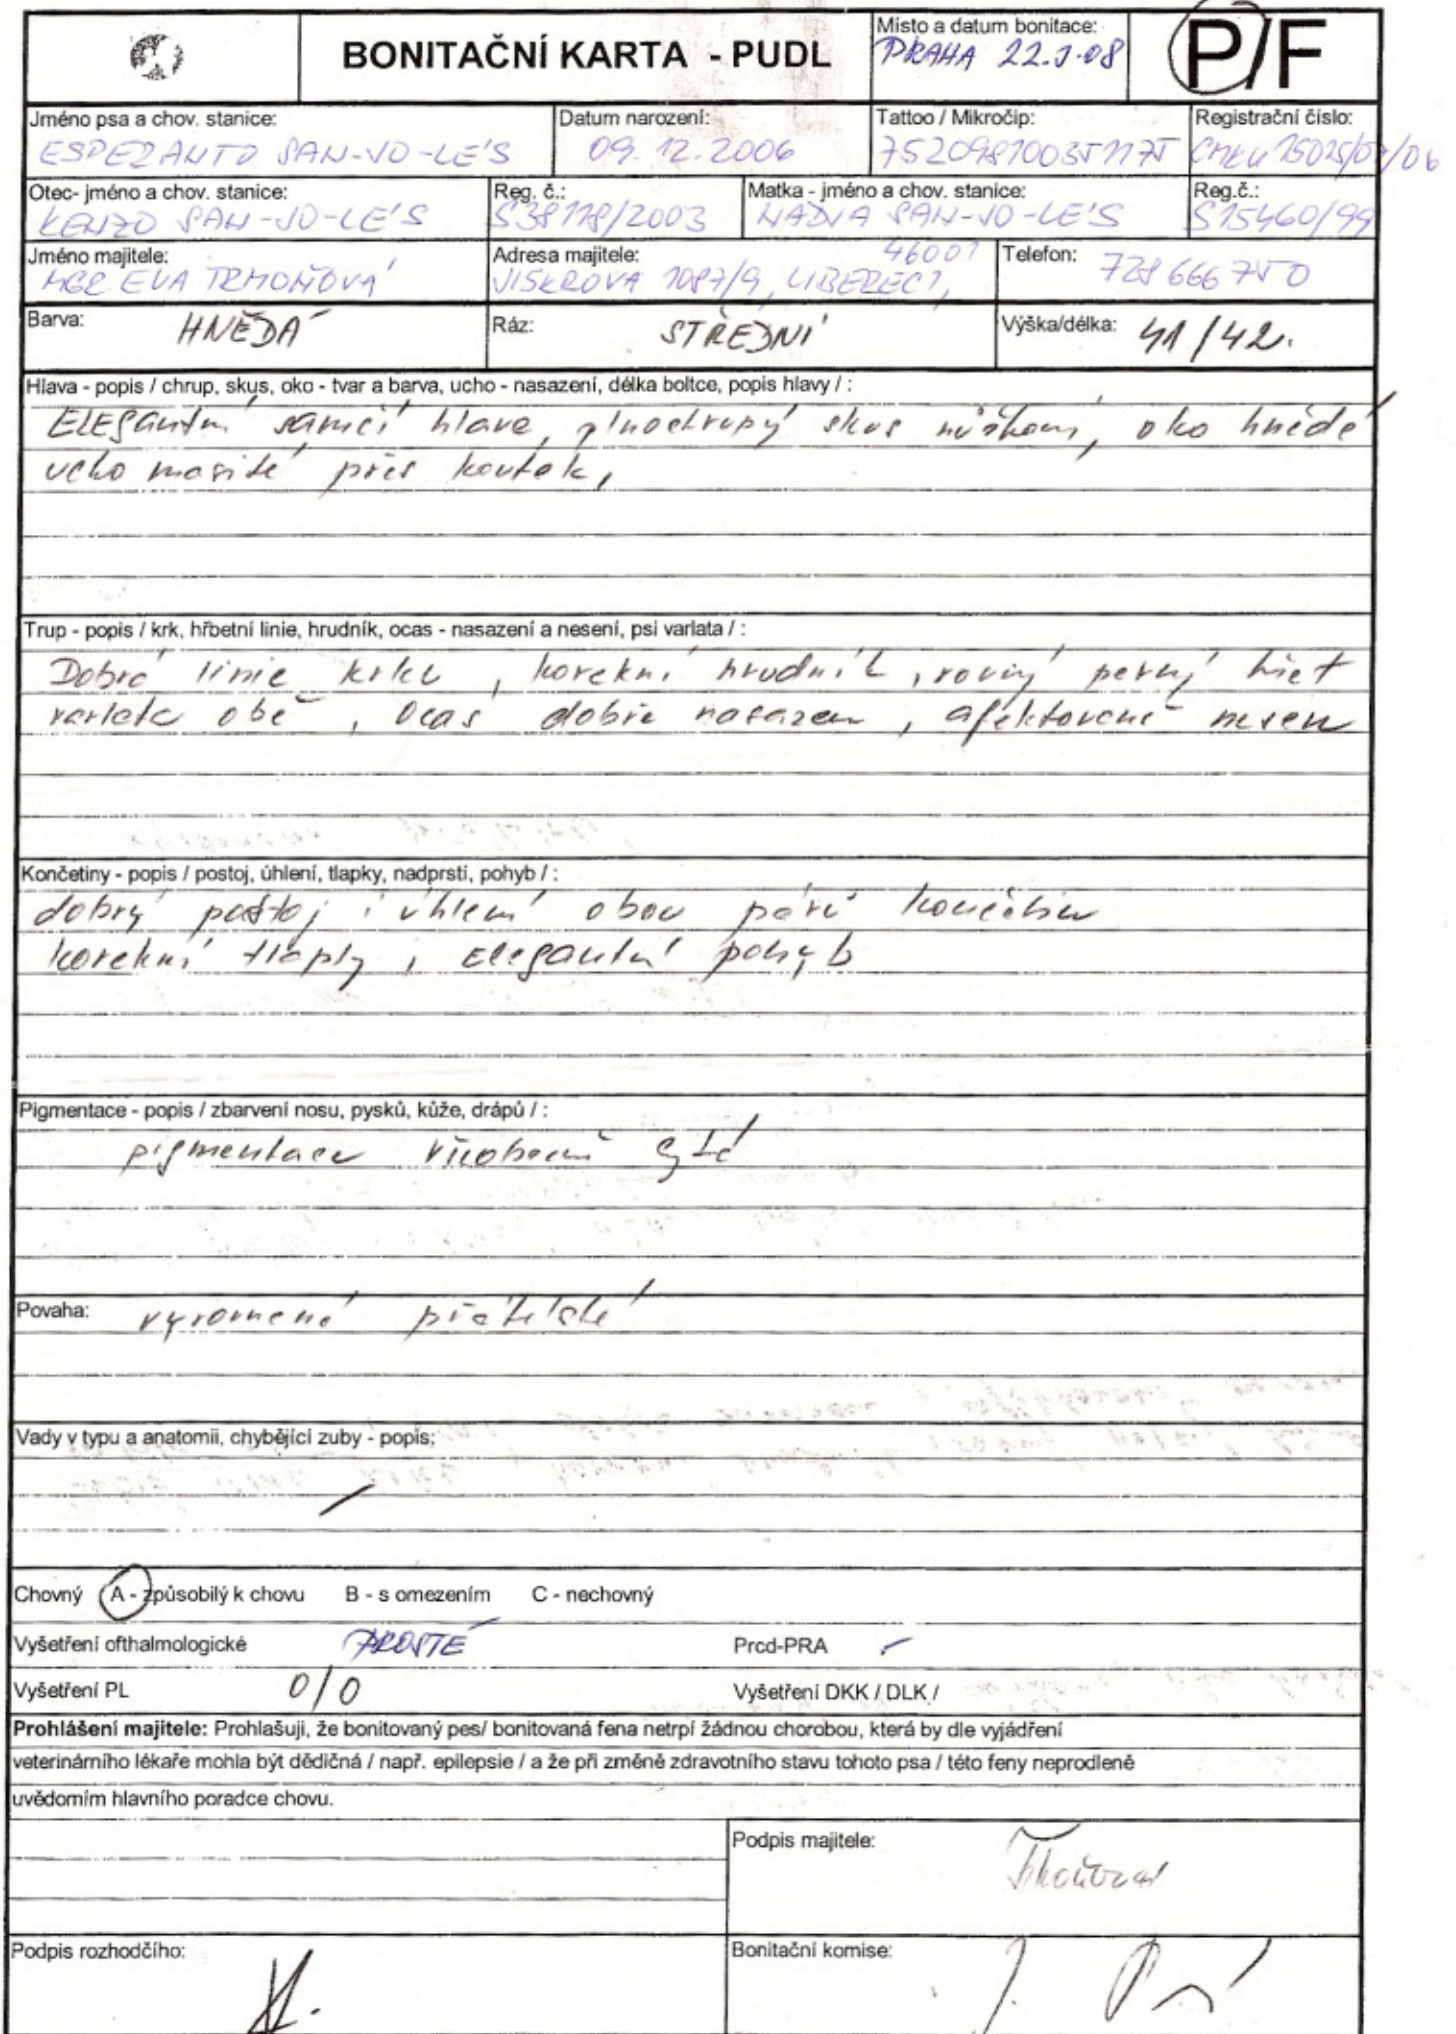 BONITAČNÍ KARTA - PUDL
Místo a datum bonitace:
PRAHA 22.3.08
P/F
Jméno psa a chov. stanice:
ESPERANTO SAN-JO-LE'S
Datum narození:
09.12.2006
Tattoo / Mikročip:
Registrační číslo:
Otec- jméno a chov. stanice:
KENZO SAN-JO-LE'S
Reg. č.:
Matka - jméno a chov. stanice:
NADJA SAN-JO-LE'S
Reg.č.:
S15460/99
Jméno majitele:
MGR EVA
Adresa majitele:
46001
JISKROVA 1087/9, LIBEREC 1,
Telefon:
728 666 750
Barva: HNĚDÁ
Ráz: STŘEDNÍ
Výška/délka: 41/42.
Hlava - popis / chrup, skus, oko - tvar a barva, ucho - nasazení, délka boltce, popis hlavy / :
Elegantní samčí hlava, plnochrupý skus nůžkový, oko hnědé
ucho masité přes koutek,
Trup - popis / krk, hřbetní linie, hrudník, ocas - nasazení a nesení, psi varlata / :
Dobrá linie krku, korektní hrudník, rovný pevný hřbet
varlata obě, ocas dobře nasazen, afektovaně nesen
Končetiny - popis / postoj, úhlení, tlapky, nadprstí, pohyb / :
dobrý postoj i úhlení obou párů končetin
korektní tlapky, elegantní pohyb
Pigmentace - popis / zbarvení nosu, pysků, kůže, drápů / :
pigmentace všeobecně sytá
Povaha: vyrovnaná přátelská
Vady v typu a anatomii, chybějící zuby - popis:
Chovný A - způsobilý k chovu B - s omezením C - nechovný
Vyšetření ofthalmologické PROSTÉ Prcd-PRA -
Vyšetření PL 0/0 Vyšetření DKK / DLK /
Prohlášení majitele: Prohlašuji, že bonitovaný pes/ bonitovaná fena netrpí žádnou chorobou, která by dle vyjádření
veterinárního lékaře mohla být dědičná / např. epilepsie / a že při změně zdravotního stavu tohoto psa / této feny neprodleně
uvědomím hlavního poradce chovu.
Podpis majitele:
Podpis rozhodčího:
Bonitační komise: